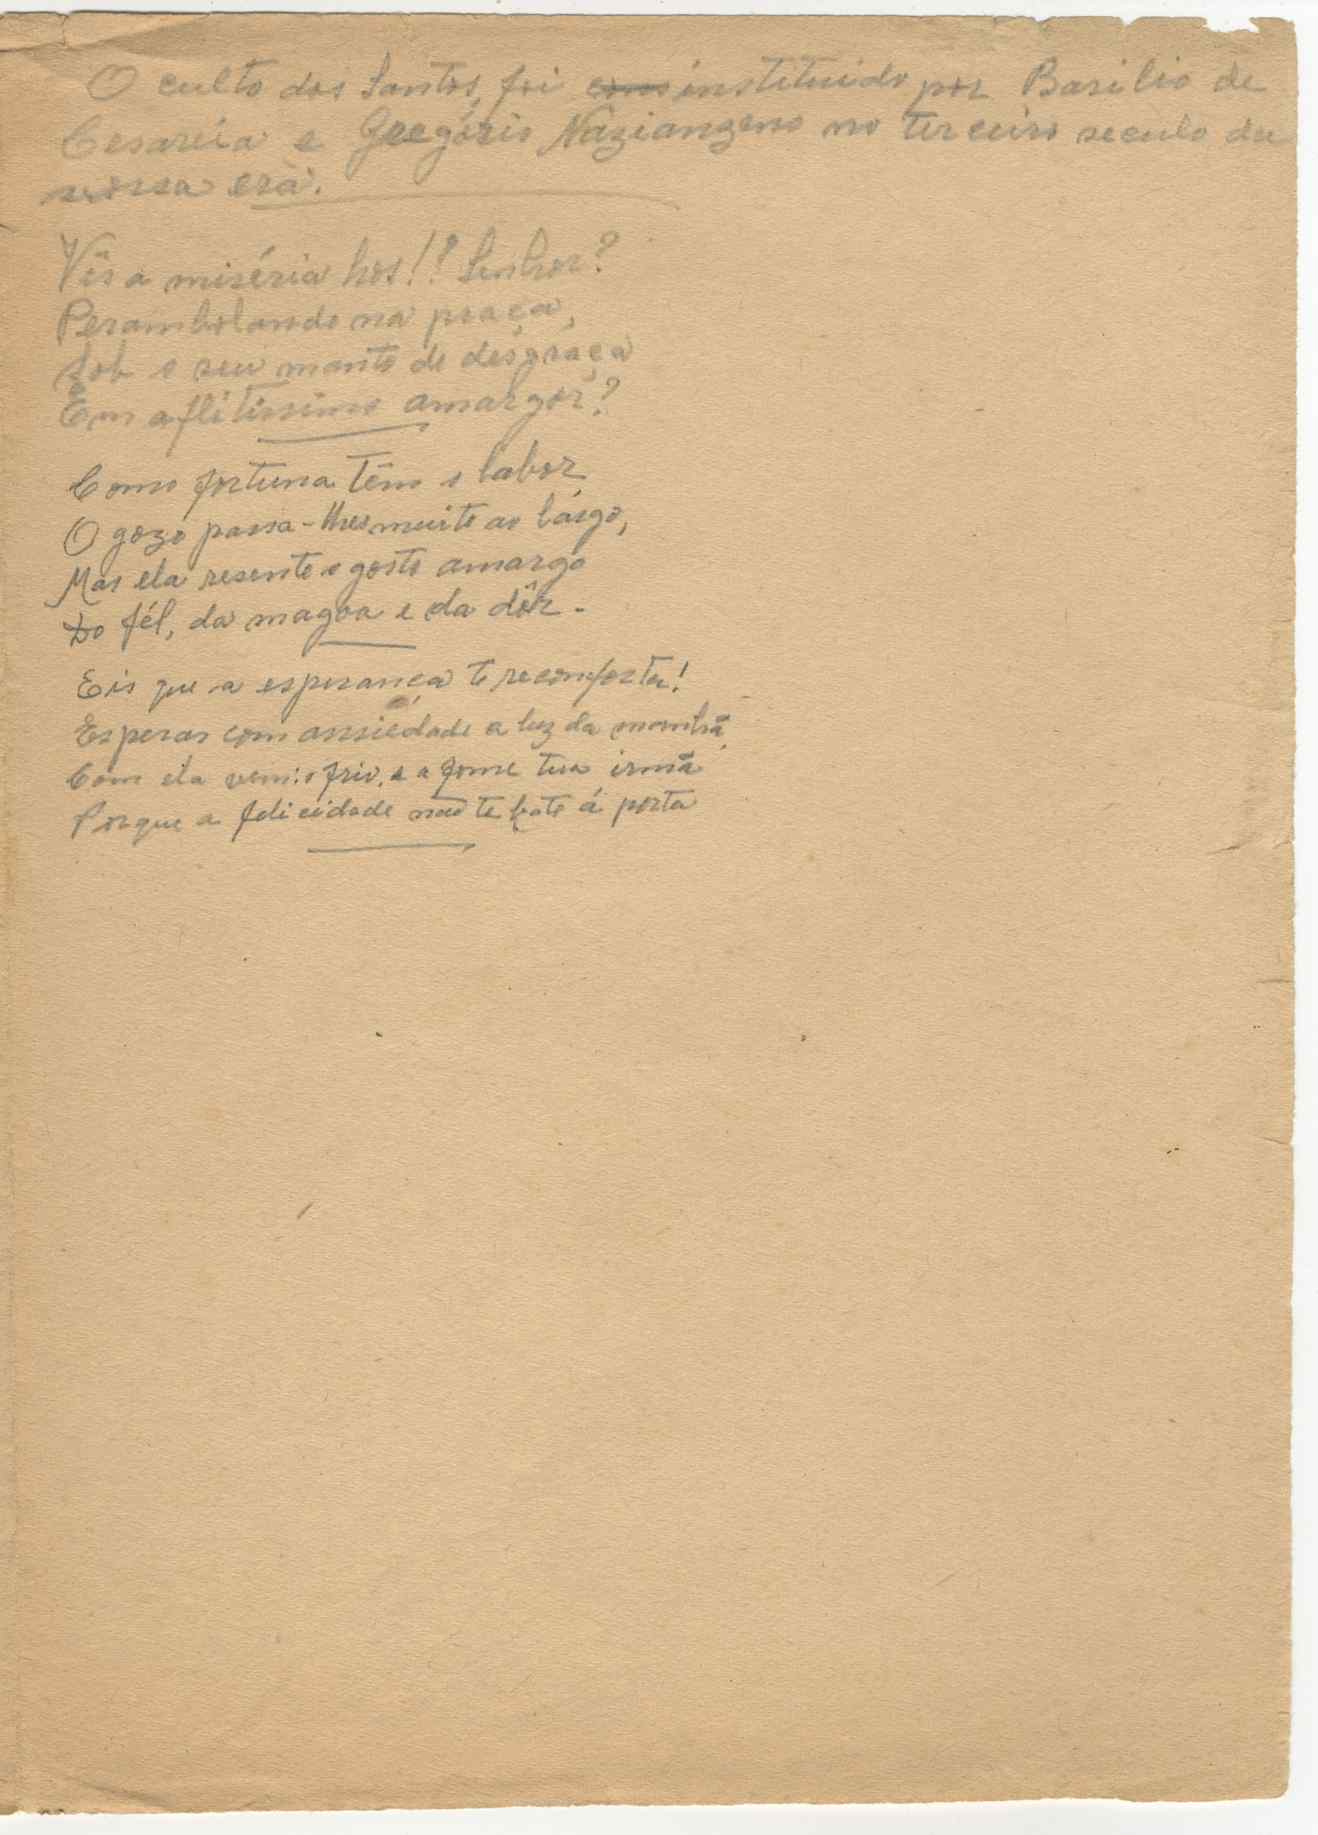 O culto dos Santos, foi cons instituido por Basilio de
Cesareia e Gregório Nazianzeno no terceiro seculo da
nossa era.
Vês a miséria hos!? Senhor?
Perambolando na praça,
Sob o seu manto de desgraça
Em aflitissimo amargor?
Como fortuna têm o labor
O gozo passa-lhes muito ao lárgo,
Mas ela resente o gosto amargo
Do fél, da magoa e da dôr.
Eis que a esperança te reconforta!
Esperas com ansiedade a luz da manhã
Com ela vem: o frio, e a fome tua irmã
Porque a felicidade não te bate á porta